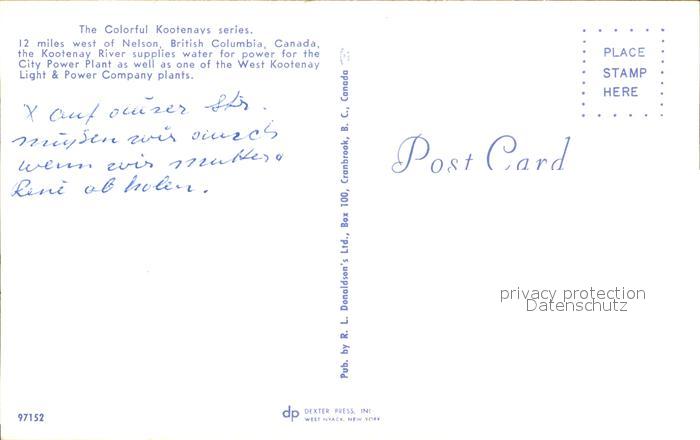 The Colorful Kootenays series.
12 miles west of Nelson, British Columbia, Canada,
the Kootenay River supplies water for power for the
City Power Plant as well as one of the West Kootenay
Light & Power Company plants.
X auf dieser Str.
müßen wir durch
wenn wir
René abholen.
Pub. by R. L. Donaldson's Ltd., Box 100, Cranbrook, B. C., Canada
PLACE
STAMP
HERE
Post Card
privacy protection
Datenschutz
97152
dp DEXTER PRESS, INC
WEST NYACK, NEW YORK